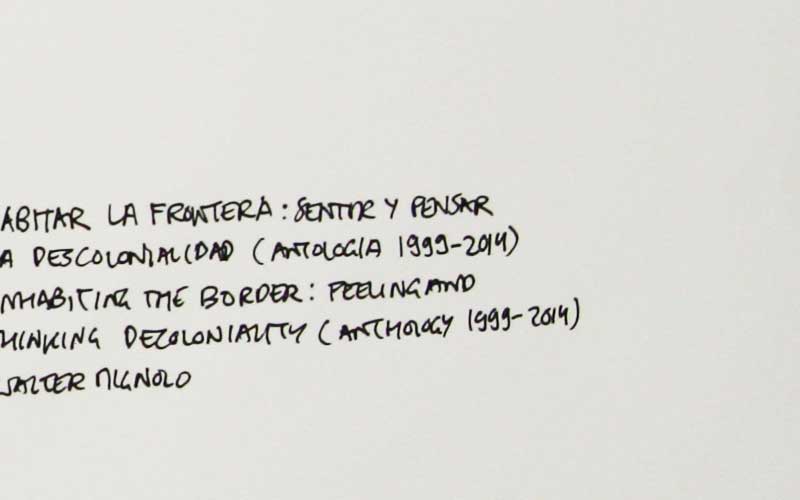 ABITAR LA FRONTERA: SENTIR Y PENSAR
A DESCOLONIALIDAD (ANTOLOGÍA 1999-2014)
NHABITING THE BORDER: FEELING AND
HINKING DECOLONIALITY (ANTHOLOGY 1999-2014)
WALTER MIGNOLO